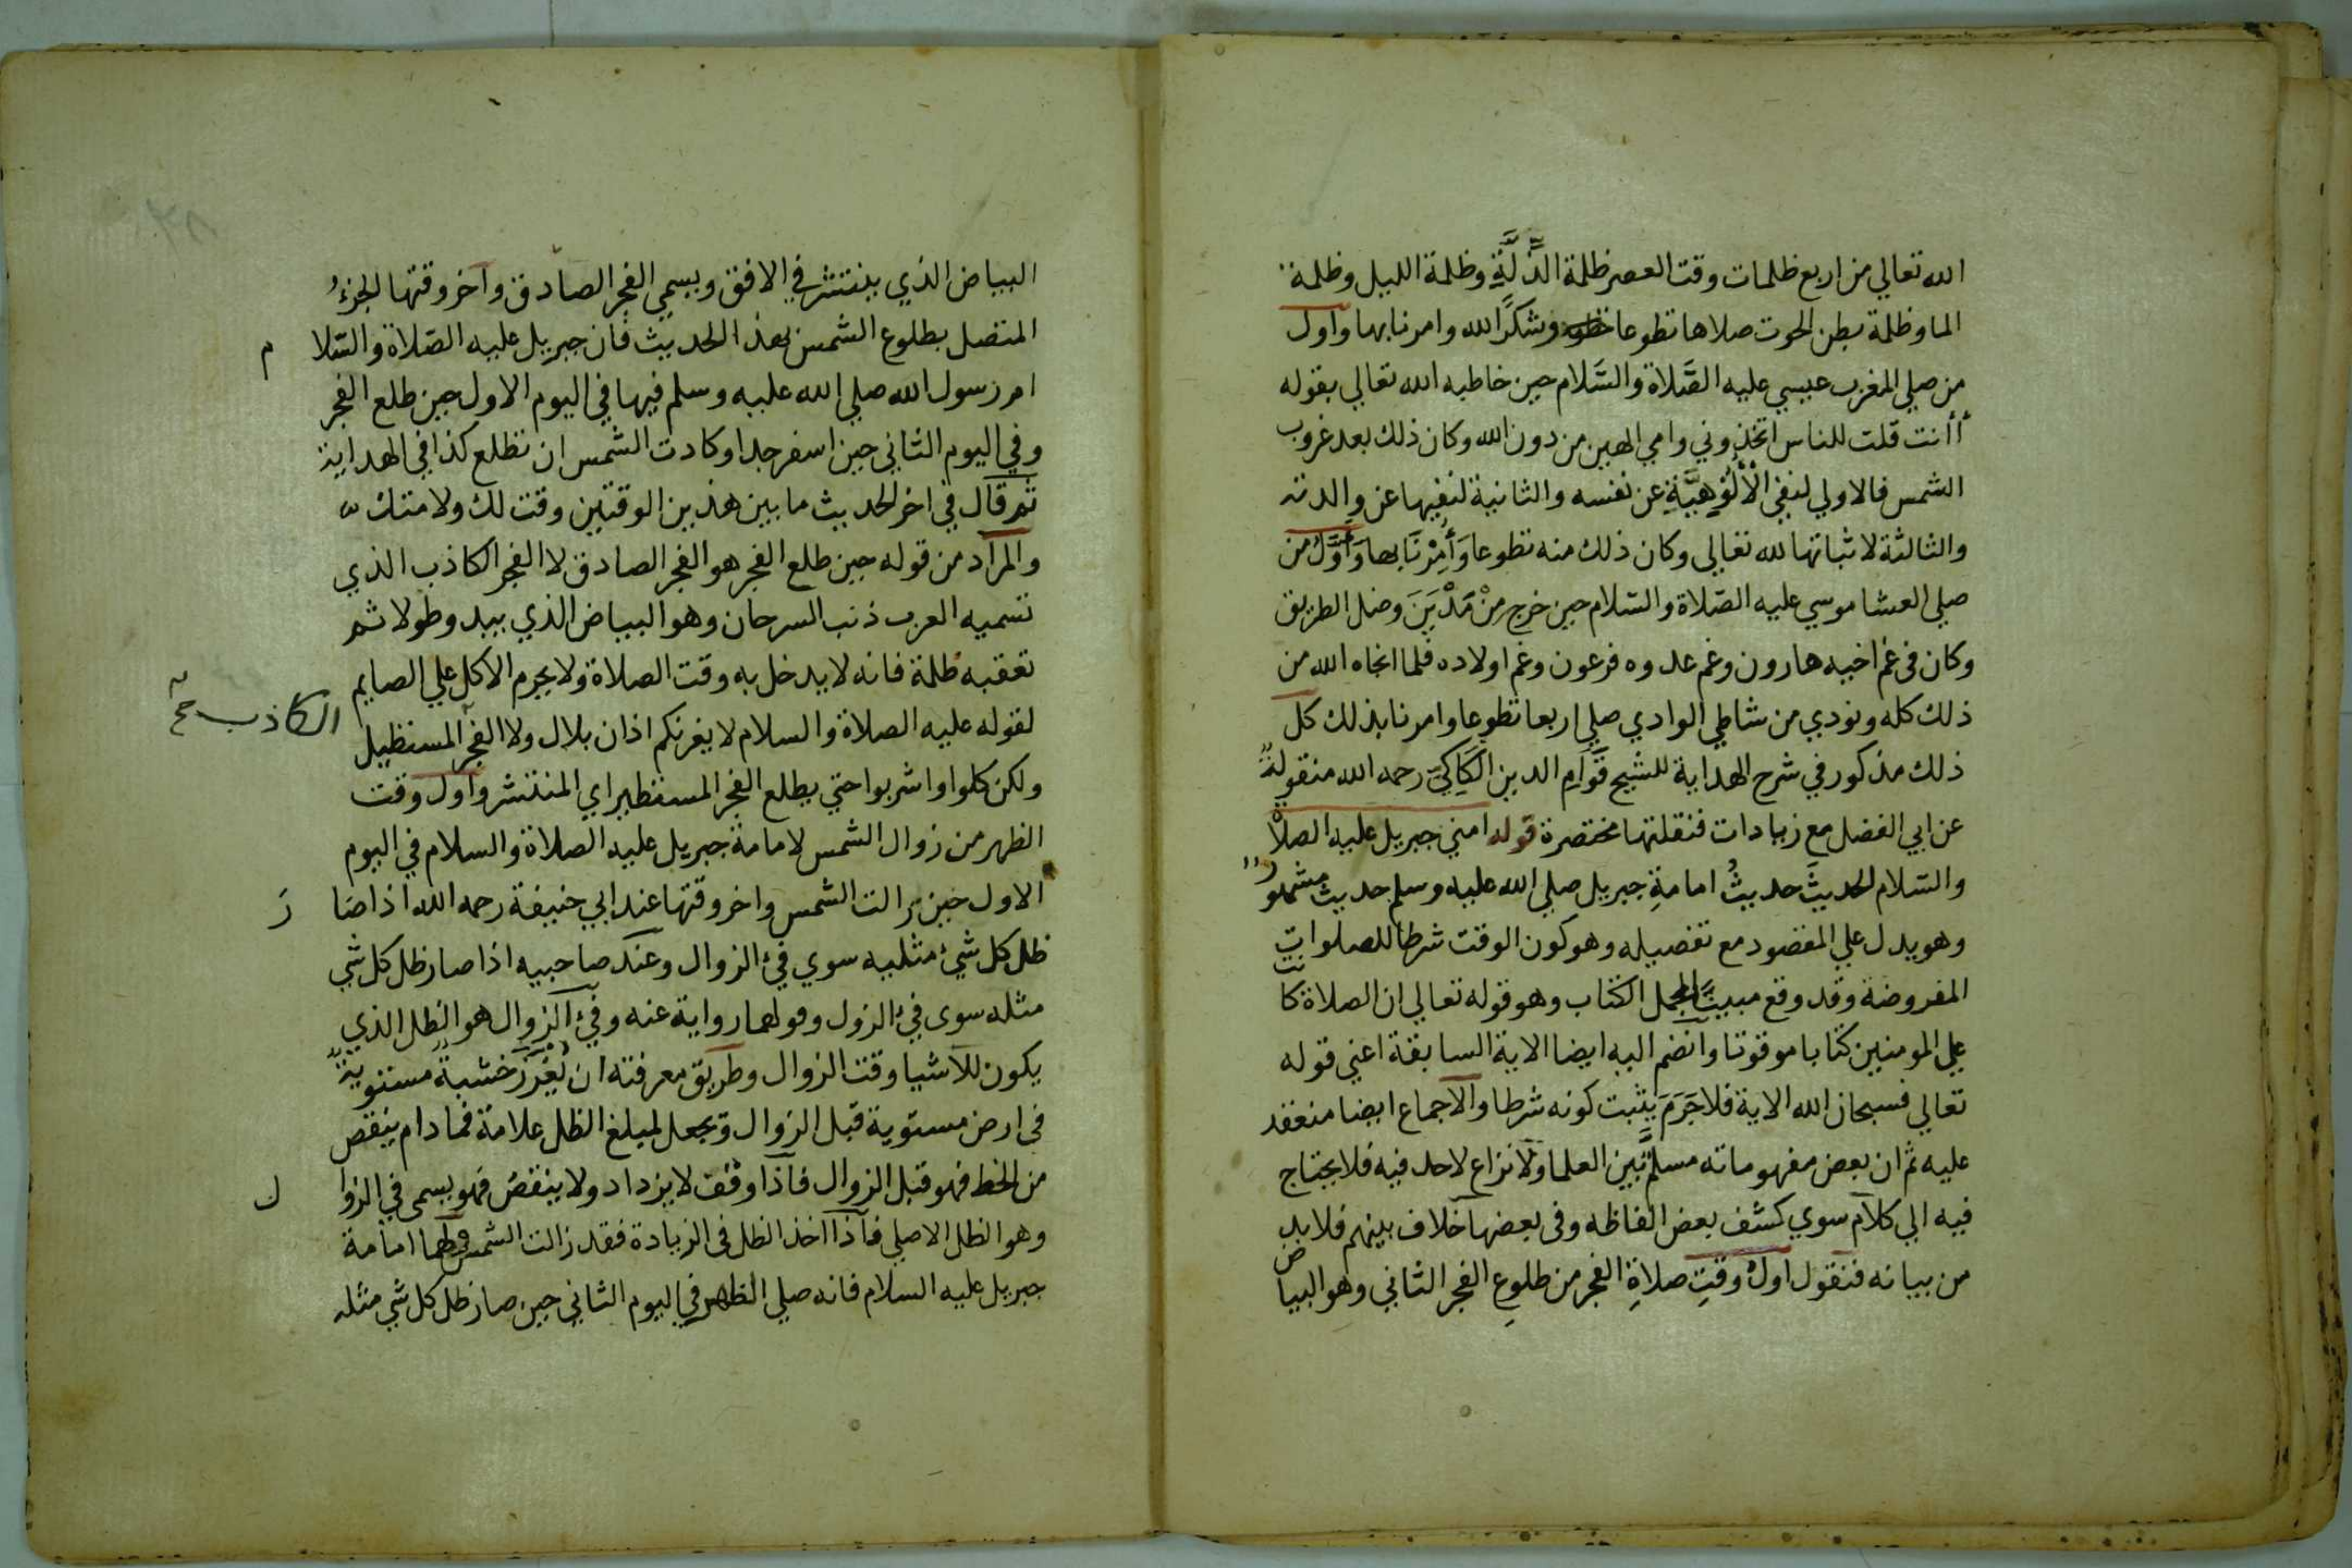 الله تعالي من اربع ظلمات وقت العصر ظلمة الذَّلَّةِ وظلمة الليل وظلمة
الما وظلمة بطن الحوت صلاها تطوعا وشكرًا لله وامرنا بها واول
من صلي المغرب عيسي عليه الصَّلاة والسَّلام حين خاطبه الله تعالي بقوله
أأنت قلت للناس اتخذوني وامي الهين من دون الله وكان ذلك بعد غروب
الشمس فالاولي لنفي الْأُلُوهِيَّةِ عن نفسه والثانية لنفيها عن والدته
والثالثة لاثباتها لله تعالي وكان ذلك منه تطوعا وَأُمِرْنَا بها وَأَوَّلُ من
صلي العشا موسي عليه الصّلاة والسّلام حين خرج مِنْ مَدْيَنَ وضل الطريق
وكان في غم اخيه هارون وغم عدوه فرعون وغم اولاده فلما انجاه الله من
ذلك كله ونودي من شاطي الوادي صلي اربعا تطوعا وامرنا بذلك كل
ذلك مذكور في شرح الهداية للشيخ قَوَّامِ الدين الكَاكِيّ رحمه الله منقولةً
عن ابي الفضل مع زيادات فنقلتها مختصرة قوله امني جبريل عليه الصلاة
والسّلام الحديثَ حديثُ امامةِ جبريل صلي الله عليه وسلم حديث مشهور
وهو يدل علي المقصود مع تفصيله وهو كون الوقت شرطا للصلوات
المفروضة وقد وقع مبينًا لمجمل الكتاب وهو قوله تعالي ان الصلاة كانت
علي المومنين كتابا موقوتا وانضم اليه ايضا الاية السابقة اعني قوله
تعالي فسبحان الله الاية فلا جَرَمَ يثبت كونه شرطا والاجماع ايضا منعقد
عليه ثم ان بعض مفهوماته مسلَّم بين العلما ولا نزاع لاحد فيه فلا يحتاج
فيه الي كلام سوي كشف بعض الفاظه وفي بعضها خلاف بينهم فلا بد
من بيانه فنقول اولُ وقتِ صلاةِ الفجر من طلوعِ الفجر الثاني وهو البياض
البياض الذي ينتشر في الافق ويسمي الفجر الصادق وآخر وقتها الجزءُ
المتصل بطلوع الشمس بهذا الحديث فان جبريل عليه الصّلاة والسّلام
ام رسول الله صلي الله عليه وسلم فيها في اليوم الاول حين طلع الفجر
وفي اليوم الثاني حين اسفر جدا وكادت الشمس ان تطلع كذا في الهداية
ثم قال في اخر الحديث ما بين هذين الوقتين وقت لك ولامتك
والمراد من قوله حين طلع الفجر هو الفجر الصادق لا الفجر الكاذب الذي
تسميه العرب ذنب السرحان وهو البياض الذي يبدو طولا ثم
تعقبه ظلمة فانه لا يدخل به وقت الصلاة ولا يحرم الاكل علي الصايم
لقوله عليه الصلاة والسلام لا يغرنكم اذان بلال ولا الفجر المستطيل
الكاذب صح
ولكن كلوا واشربوا حتي يطلع الفجر المستطير اي المنتشر واول وقت
الظهر من زوال الشمس لامامة جبريل عليه الصلاة والسلام في اليوم
الاول حين زالت الشمس واخر وقتها عند ابي حنيفة رحمه الله اذا صار
ظل كل شيء مثليه سوي فيء الزوال وعند صاحبيه اذا صار ظل كل شي
مثله سوى فيء الزول وقولهما رواية عنه وفيء الزوال هو الظل الذي
يكون للاشيا وقت الزوال وطريق معرفته ان تُغْرَزَ خشبةً مستويةً
في ارض مستوية قبل الزوال ويجعل لمبلغ الظل علامة فما دام ينقص
من الخط فهو قبل الزوال فاذا وقف لا يزداد ولا ينقص فهو يسمى في الزوال
وهو الظل الاصلي فاذا اخذ الظل في الزيادة فقد زالت الشمس امامة
جبريل عليه السلام فانه صلي الظهر في اليوم الثاني حين صار ظل كل شي مثله